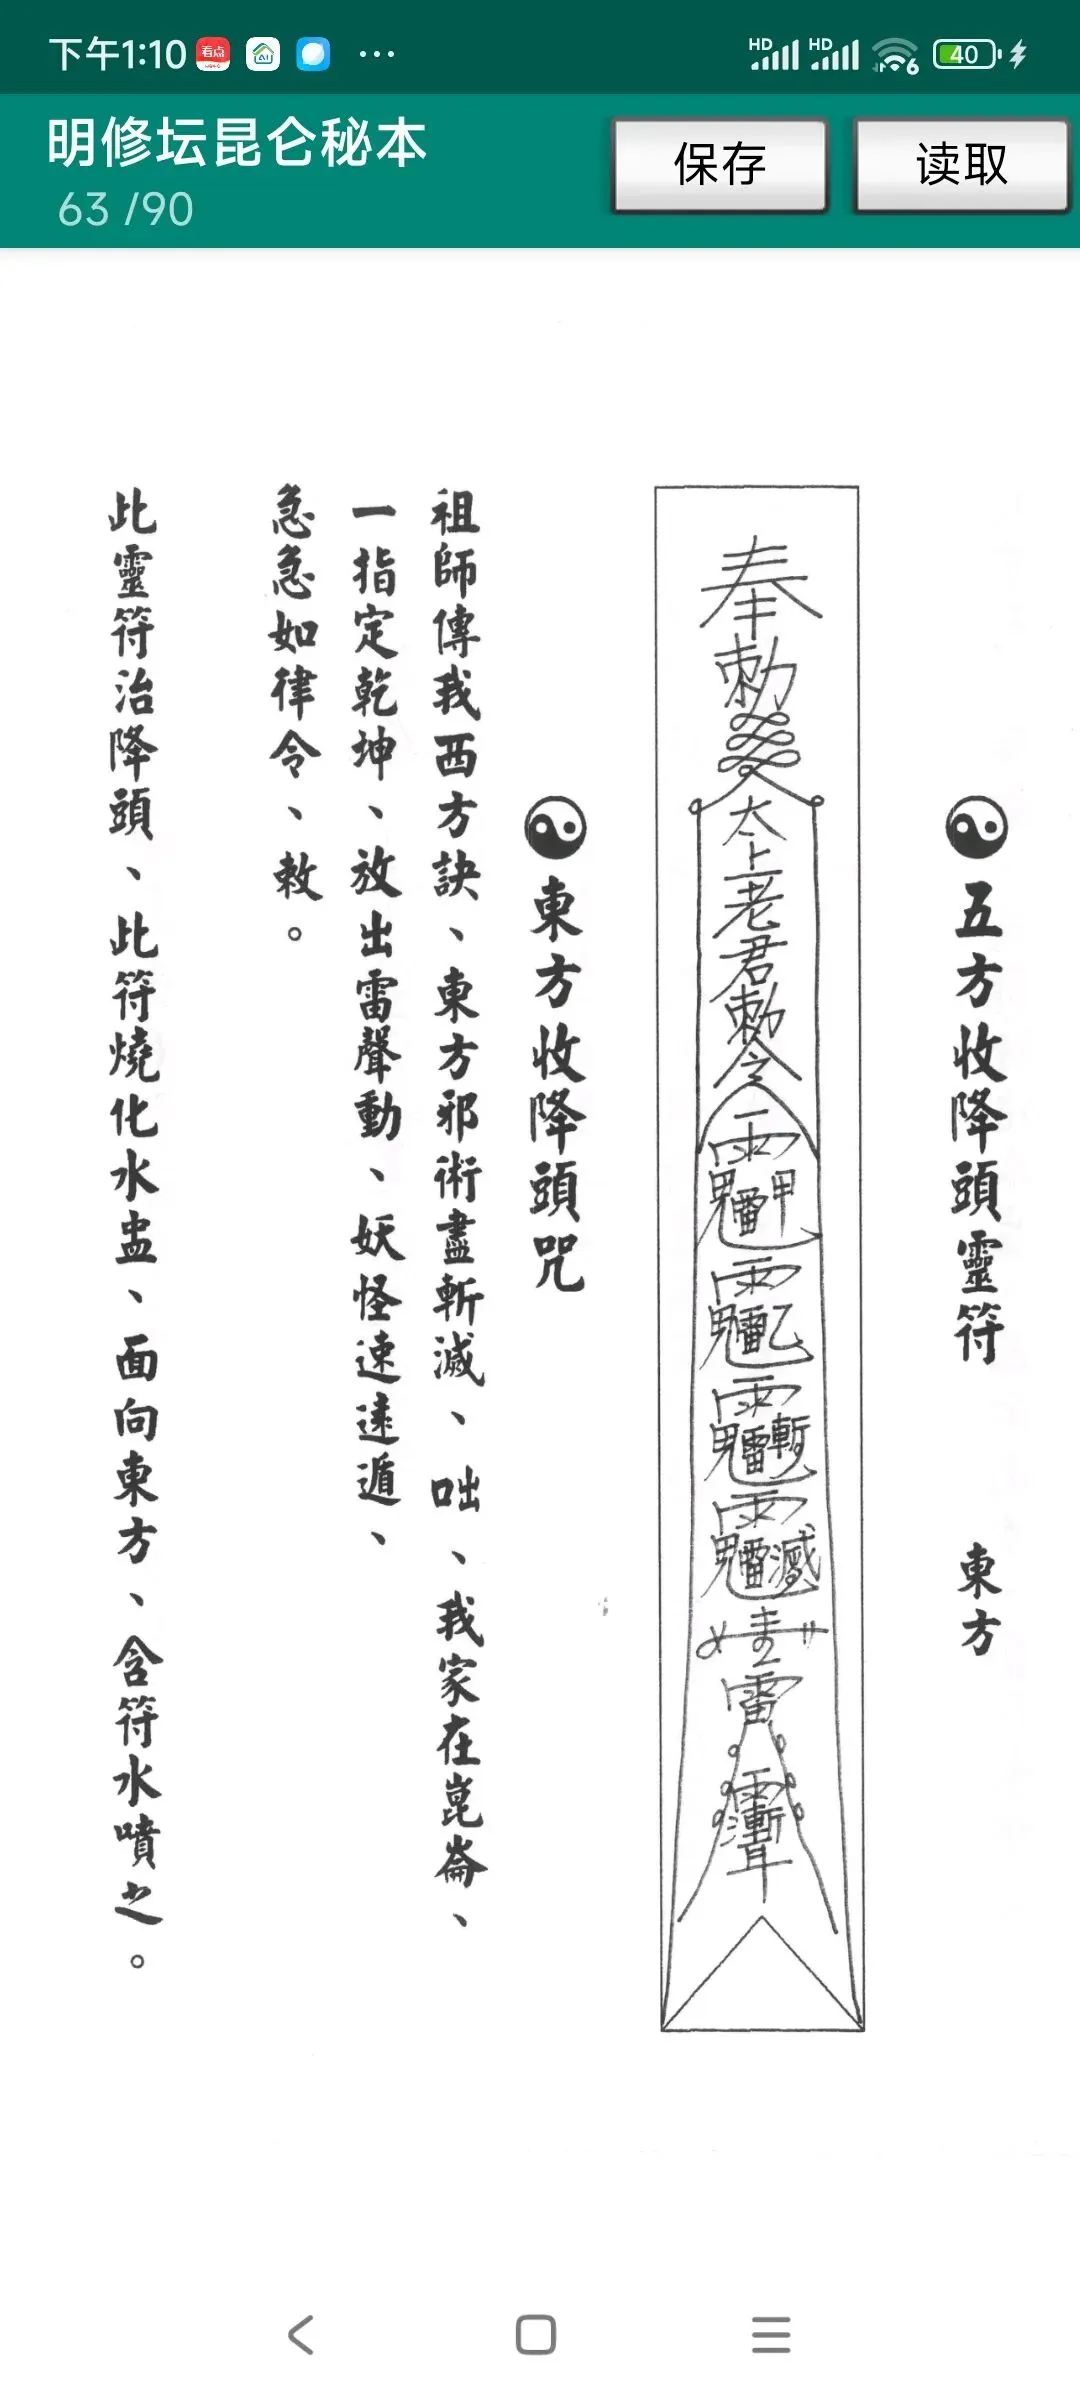 下午1:10
HD HD 6 40
明修坛昆仑秘本
63 /90
保存
读取
五方收降頭靈符 東方
奉勅
太上老君勅令
雷
東方收降頭咒
祖師傳我西方訣、東方邪術盡斬滅、咄、我家在崑崙、
一指定乾坤、放出雷聲動、妖怪速遠遁、
急急如律令、敕。
此靈符治降頭、此符燒化水盅、面向東方、含符水噴之。